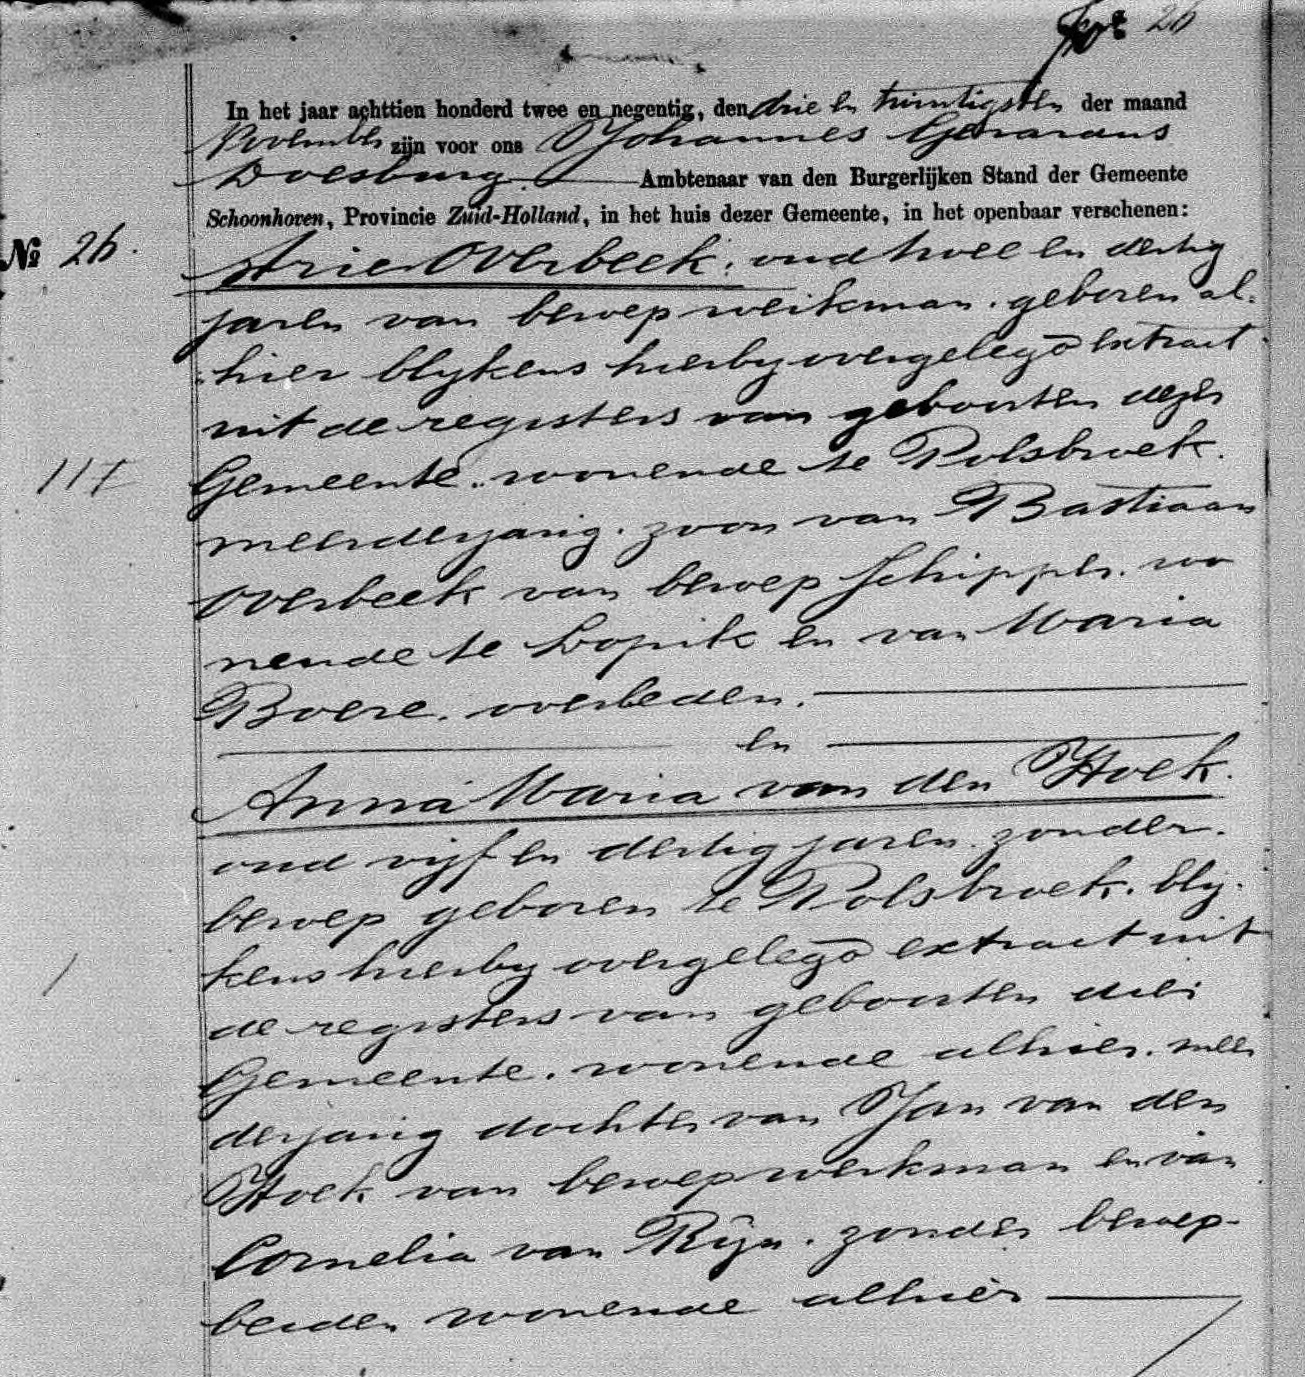 26
In het jaar achttien honderd twee en negentig, den drie en twintigsten der maand
November zijn voor ons Johannes Gerardus
Doesburg Ambtenaar van den Burgerlijken Stand der Gemeente
Schoonhoven, Provincie Zuid-Holland, in het huis dezer Gemeente, in het openbaar verschenen:
№ 26.
Arie Overbeek, oud twee en dertig
jaren van beroep werkman, geboren al-
hier blykens hierby overgelegd extract
uit de registers van geboorten dezer
Gemeente, wonende te Polsbroek,
117
meerderjarig, zoon van Bastiaan
Overbeek van beroep schipper, wo
nende te Lopik en van Maria
Boere, overleden,
en
Anna Maria van den Hoek,
oud vyf en dertig jaren, zonder
beroep geboren te Polsbroek, bly-
kens hierby overgelegd extract uit
de registers van geboorten dier
Gemeente, wonende alhier, meer
derjarig dochter van Jan van den
Hoek van beroep werkman en van
Cornelia van Rijn, zonder beroep
beiden wonende alhier